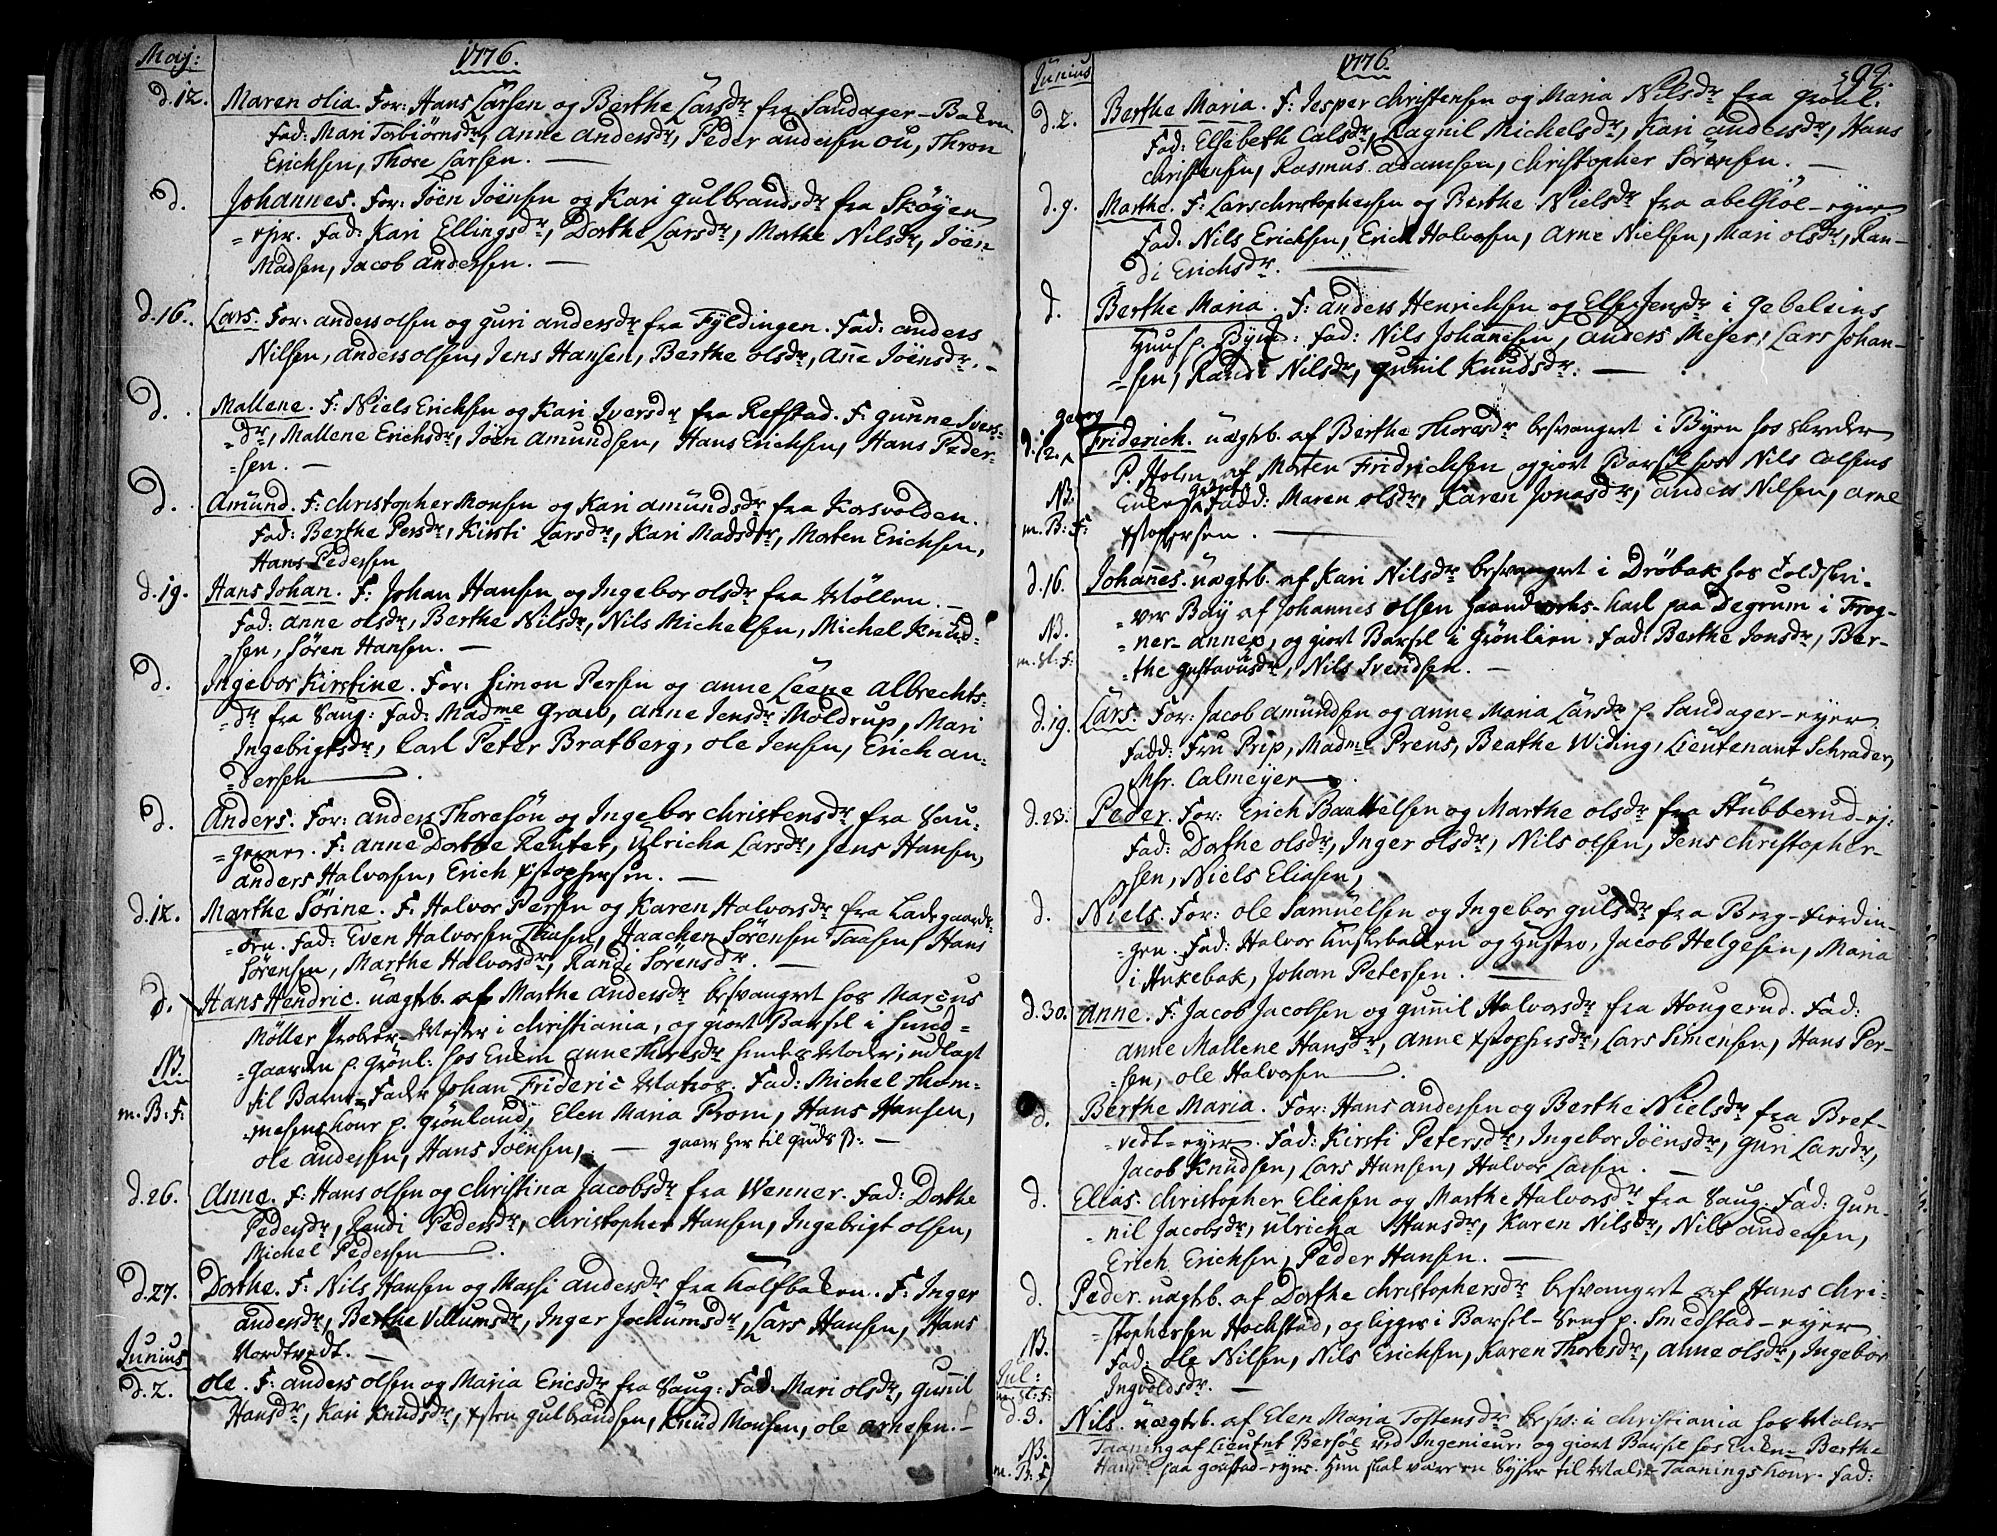 Maj: 1776.
d. 12. Maren Olia. For: Hans Larsen og Berthe Larsdr fra Sandager-Baken
Fad: Mari Torbiørnsdr, Anne Andersdr, Peder Andersen Ou, Thron
Erichsen, Thore Larsen. —
d. Johannes. For: Jöen Jöensen og Kari Gulbrandsdr fra Skøyen
-ejer. Fad: Kari Ellingsdr, Dorthe Larsdr, Marthe Nilsdr, Jöen
Madsen, Jacob Andersen. —
d. 16. Lars. For: Anders Olsen og Guri Andersdr fra Fÿldingen. Fad: Anders
Nilsen, Anders Olsen, Jens Hansen, Berthe Olsdr, Anne Jöensdr. —
d. Mallene. F: Niels Erichsen og Kari Iversdr fra Refstad. F: Gunne Ivers-
-dr, Mallene Erichsdr, Jöen Amundsen, Hans Erichsen, Hans Peder-
-sen. —
d. Amünd. F: Christopher Monsen og Kari Amündsdr fra Korsvolden.
Fad: Berthe Persdr, Kirsti Larsdr, Kari Madsdr, Morten Erichsen,
Hans Pedersen
d. 19. Hans Johan. F: Johan Hansen og Ingebor Olsdr fra Møllen. —
Fad: Anne Olsdr, Berthe Nilsdr, Nils Michelsen, Michel Knüd-
sen, Sören Hansen. —
d. Ingebor Kirstine. For: Simon Persen og Anne Leene Albrechts-
-dr fra Saug: Fad: Madme Graw, Anne Jensdr Moldrup, Mari
Ingebrigtsdr, Carl Peter Bratberg, Ole Jensen, Erich An-
-dersen —.
d. Anders. For: Anders Thoresön og Ingebor Christensdr fra Sau-
-gejer. F: Anne Dorthe Reuter, Ulricha Larsdr, Jens Hansen,
Anders Halvorsen, Erich Xstophersen. —
d. 12. Marthe Sörine. F: Halvor Persen og Karen Halvorsdr fra Ladegaards-
-öen. Fad: Even Halvorsen Thusen, Haachen Sörensen Taasen, Hans
Sörensen, Marthe Halvorsdr, Randi Sörensdr. —
d. Hans Hendric. uægtb. af Marthe Andersdr besvangret hos Marcus
Möller Prober-Mester i Christiania, og giort Barsel i Sund-
NB. -gaarden p. Grönl: hos Enken Anne Thoresdr hendes Moder; udlagt
til Barne-Fader Johan Frideric Matros. Fad: Michel Thom-
m. B: F: -mesens kone p. Grönland, Elen Maria Prom, Hans Hansen,
Ole Andersen, Hans Joensen, — gaaer her til Guds B: —
d. 26. Anne. F: Hans Olsen og Christina Jacobsdr fra Wenner. Fad: Dorthe
Pedersdr, Randi Pedersdr, Christopher Hansen, Ingebrigt Olsen,
Michel Pedersen —.
d. 27. Dorthe. F: Nils Hansen og Marsi Andersdr fra Kalfbaken. F: Inger
Andersdr, Berthe Villumsdr, Inger Jochumsdr, Lars Hansen, Hans
Nordtvedt. —
Junius
d. 2. Ole. F: Anders Olsen og Maria Ericsdr fra Saug: Fad: Mari Olsdr, Gunil
Hansdr, Kari Knüdsdr, Xsten Gulbrandsen, Knüd Monsen, Ole Arnesen. —
Junius 1776.
d. 2. Berthe Maria. F: Jesper Christensen og Maria Nilsdr fra Grönl.
Fad: Elsebeth Calsdr, Ragnil Michelsdr, Kari Andersdr, Hans
Christensen, Rasmus Adamsen, Christopher Sörensen. —
d. 9. Marthe. F: Lars Christophersen og Berthe Nielsdr fra Abelsiöe-ejer
Fad: Nils Erichsen, Erich Halvorsen, Arne Nielsen, Mari Olsdr, Ran-
di Erichsdr. —
d. Berthe Maria. F: Anders Henrichsen og Else Jensdr i Gebelsins
Huus p. Byen: Fad: Nils Johanesen, Anders Mejer, Lars Johan-
-sen, Randi Nilsdr, Gunil Knüdsdr. —
Georg
d. 12. Friderich. uægtb. af Berthe Thoresdr besvangret i Byen hos Skreder
P. Holm af Morten Fridrichsen og giort Barsel hos Nils Calsens
NB. Enke Fadd: Maren Olsdr, Karen Jonasdr, Anders Nilsen, Arne
m. B: F: Xstophersen. —
d. 16. Johannes. uægtb. af Kari Nilsdr besvangret i Dröbak hos Toldskri-
-ver Bay af Johannes Olsen Haandverks-karl paa Degrum i Frog-
NB. -ner-Annex, og giort Barsel i Grönlien. Fad: Berthe Jonsdr, Ber-
m. Sl: F: -the Gustavusdr, Nils Svendsen. —
d. 19. Lars. For: Jacob Amündsen og Anne Maria Larsdr p. Sandager-ejer
Fadd: Fru Prip, Madme Preus, Beathe Widing, Lieutenant Schrader,
Msr. Calmeyer —.
d. 23. Peder. For: Erich Baultelsen og Marthe Olsdr fra Stubberud-ej:
Fad: Dorthe Olsdr, Inger Olsdr, Nils Olsen, Jens Christopher-
sen, Niels Eliasen,
d. Niels. For: Ole Samüelsen og Ingebor Gulsdr fra Borg-Fierdin-
-gen. Fad: Halvor Huskebaken og Hustro, Jacob Helgesen, Maria
i Hukebak, Johan Petersen. —
d. 30. Anne. F: Jacob Jacobsen og Gunil Halvorsdr fra Hougerud. Fad:
Anne Mallene Hansdr, Anne Xstophersdr, Lars Simensen, Hans Per-
-sen, Ole Halvorsen —.
d. Berthe Maria. For: Hans Andersen og Berthe Nielsdr fra Bret-
-vedt-ejer. Fad: Kirsti Petersdr, Ingebor Jöensdr, Guri Larsdr,
Jacob Knüdsen, Lars Hansen, Halvor Larsen. —
d. Elias. Christopher Eliasen og Marthe Halvorsdr fra Saug. Fad: Gun-
-nil Jacobsdr, Ulricha Hansdr, Karen Nilsdr, Nils Andersen,
Erich Erichsen, Peder Hansen. —
d. Peder. uægtb. af Dorthe Christophersdr besvangret af Hans Chri-
NB. -stophersen Hochstad, og ligger i Barsel-Seng p. Smedstad-ejer
Fad: Ole Nilsen, Nils Erichsen, Karen Thoresdr, Anne Olsdr, Ingebor
Jul: m. Sl: F: Ingvoldsdr. —
d. 3. Nils. uægtb. af Elen Maria Tostensdr besv: i Christiania hos Maler
NB. Taaning af Lieutnt Bersöe ved Ingenieur: og giort Barsel hos Enken Berthe
m. B: F: Hansdr paa Goastad-ejer. Hun skal være en Syster til Maler Taanings kone. Fad: